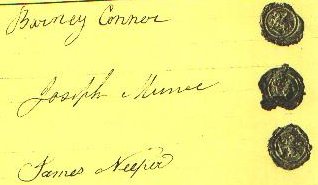 Barney Connor
Joseph
James Neeper